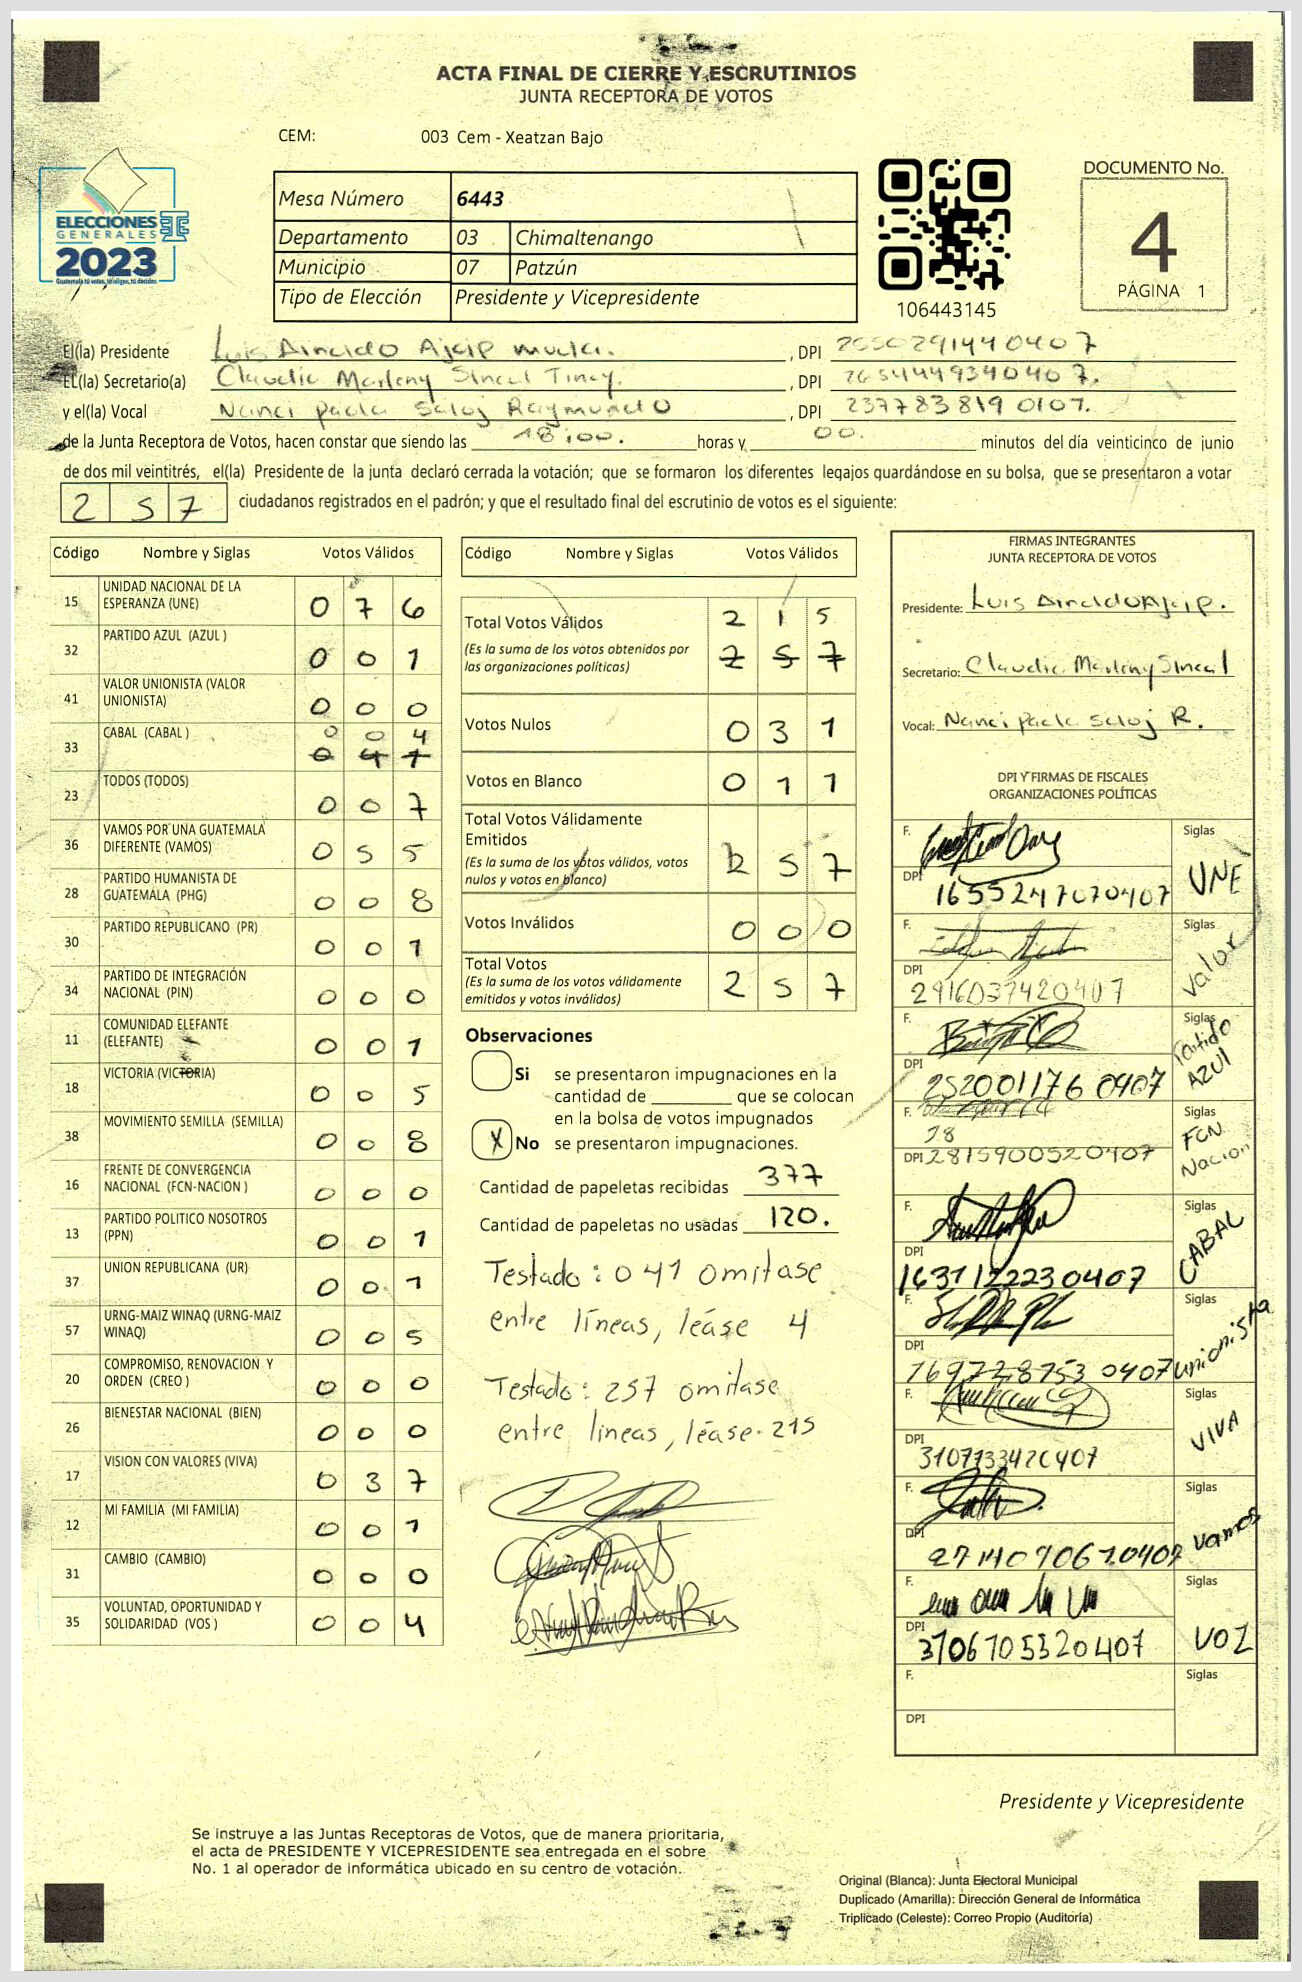 ACTA FINAL DE CIERRE Y ESCRUTINIOS
JUNTA RECEPTORA DE VOTOS
CEM: 003 Cem - Xeatzan Bajo
DOCUMENTO No.
4
PÁGINA 1
ELECCIONES
GENERALES
2023
Guatemala tú votas, tú eliges, tú decides
Mesa Número 6443
Departamento 03 Chimaltenango
Municipio 07 Patzún
Tipo de Elección Presidente y Vicepresidente
106443145
El(la) Presidente Luis Ajcip , DPI 2550291440407
EL(la) Secretario(a) Claudia Marleny Sincal Tincy. , DPI 2654449340407.
y el(la) Vocal Nanci Paola Saloj Raymundo , DPI 2377838190107.
de la Junta Receptora de Votos, hacen constar que siendo las 18:00. horas y 00. minutos del día veinticinco de junio
de dos mil veintitrés, el(la) Presidente de la junta declaró cerrada la votación; que se formaron los diferentes legajos guardándose en su bolsa, que se presentaron a votar
257 ciudadanos registrados en el padrón; y que el resultado final del escrutinio de votos es el siguiente:
Código Nombre y Siglas Votos Válidos
15 UNIDAD NACIONAL DE LA ESPERANZA (UNE) 0 7 6
32 PARTIDO AZUL (AZUL ) 0 0 1
41 VALOR UNIONISTA (VALOR UNIONISTA) 0 0 0
33 CABAL (CABAL ) 0 0 4
0 4 1
23 TODOS (TODOS) 0 0 7
36 VAMOS POR UNA GUATEMALA DIFERENTE (VAMOS) 0 5 5
28 PARTIDO HUMANISTA DE GUATEMALA (PHG) 0 0 8
30 PARTIDO REPUBLICANO (PR) 0 0 1
34 PARTIDO DE INTEGRACIÓN NACIONAL (PIN) 0 0 0
11 COMUNIDAD ELEFANTE (ELEFANTE) 0 0 1
18 VICTORIA (VICTORIA) 0 0 5
38 MOVIMIENTO SEMILLA (SEMILLA) 0 0 8
16 FRENTE DE CONVERGENCIA NACIONAL (FCN-NACION ) 0 0 0
13 PARTIDO POLITICO NOSOTROS (PPN) 0 0 1
37 UNION REPUBLICANA (UR) 0 0 1
57 URNG-MAIZ WINAQ (URNG-MAIZ WINAQ) 0 0 5
20 COMPROMISO, RENOVACION Y ORDEN (CREO ) 0 0 0
26 BIENESTAR NACIONAL (BIEN) 0 0 0
17 VISION CON VALORES (VIVA) 0 3 7
12 MI FAMILIA (MI FAMILIA) 0 0 1
31 CAMBIO (CAMBIO) 0 0 0
35 VOLUNTAD, OPORTUNIDAD Y SOLIDARIDAD (VOS ) 0 0 4
Código Nombre y Siglas Votos Válidos
Total Votos Válidos 2 1 5
(Es la suma de los votos obtenidos por las organizaciones políticas) 2 5 7
Votos Nulos 0 3 1
Votos en Blanco 0 1 1
Total Votos Válidamente Emitidos
(Es la suma de los votos válidos, votos nulos y votos en blanco) 2 5 7
Votos Inválidos 0 0 0
Total Votos
(Es la suma de los votos válidamente emitidos y votos inválidos) 2 5 7
Observaciones
Si se presentaron impugnaciones en la
cantidad de ________ que se colocan
en la bolsa de votos impugnados
X No se presentaron impugnaciones.
Cantidad de papeletas recibidas 377
Cantidad de papeletas no usadas 120.
Testado: 041 omitase
entre líneas, léase 4
Testado: 257 omitase
entre lineas, léase. 215
FIRMAS INTEGRANTES
JUNTA RECEPTORA DE VOTOS
Presidente: Luis
Secretario: Claudia Marleny Sincal
Vocal: Nanci Paola Saloj R.
DPI Y FIRMAS DE FISCALES
ORGANIZACIONES POLÍTICAS
F. Siglas
DPI 1655247070407 UNE
F. Siglas
DPI 2916037420407 Valor
F. Siglas
DPI 252001176 0407 Partido AZUL
F. Siglas
DPI 2815900520407 FCN Nacion
F. Siglas
DPI 1631122230407 CABAL
F. Siglas
DPI 1697287530407 unionista
F. Siglas
DPI 3107133420407 VIVA
F. Siglas
DPI Vamos
F. Siglas
DPI 3106705320407 VOZ
F. Siglas
DPI
Presidente y Vicepresidente
Se instruye a las Juntas Receptoras de Votos, que de manera prioritaria,
el acta de PRESIDENTE Y VICEPRESIDENTE sea entregada en el sobre
No. 1 al operador de informática ubicado en su centro de votación.
Original (Blanca): Junta Electoral Municipal
Duplicado (Amarilla): Dirección General de Informática
Triplicado (Celeste): Correo Propio (Auditoría)